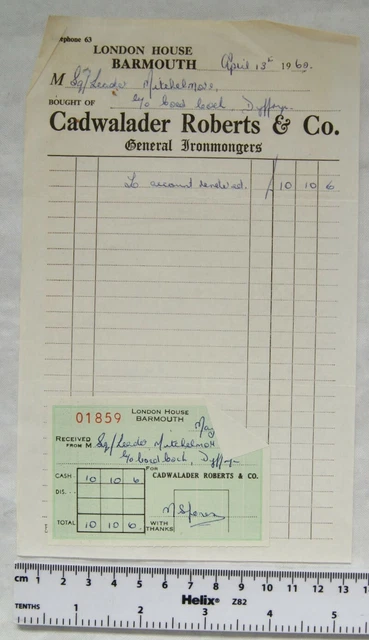 ephone 63
LONDON HOUSE
BARMOUTH April 13 1960.
M Sq/Leader Mitchelmore,
BOUGHT OF c/o Coed Coch, Dyffryn.
Cadwalader Roberts & Co.
General Ironmongers
To account rendered. 10 10 6
01859
LONDON HOUSE
BARMOUTH
May
RECEIVED
FROM M Sq/Leader Mitchelmore
c/o Coed Coch, Dyffryn
FOR
CASH 10 10 6 CADWALADER ROBERTS & CO.
DIS.
TOTAL 10 10 6. WITH THANKS
cm 1 2 3 4 5 6 7 8 9 10 11 12 13
Helix® Z82
TENTHS 1 2 3 4 5